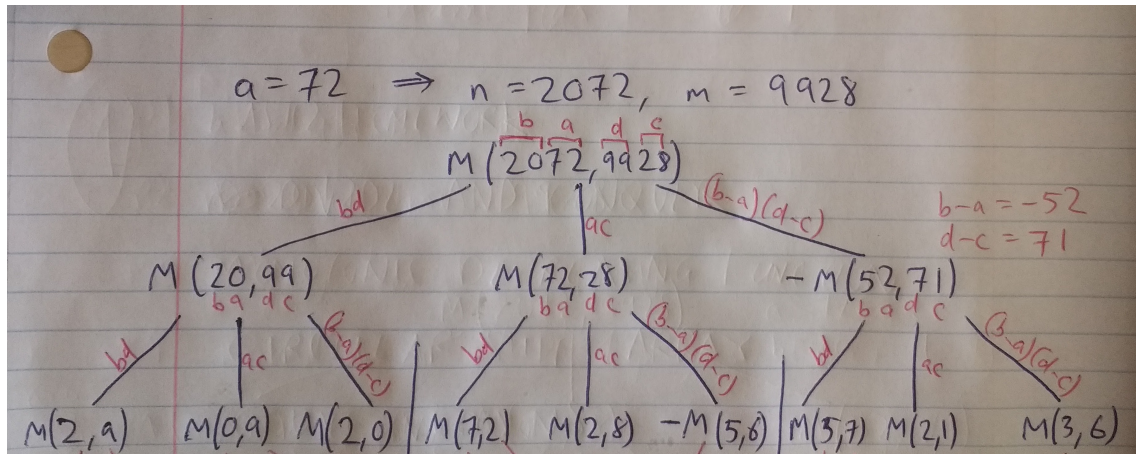 a = 72 ⇒ n = 2072, m = 9928
b a d c
M(2072, 9928)
bd ac (b-a)(d-c)
b-a = -52
d-c = 71
M(20,99) M(72,28) -M(52,71)
b a d c b a d c b a d c
bd ac (b-a)(d-c) bd ac (b-a)(d-c) bd ac (b-a)(d-c)
M(2,9) M(0,9) M(2,0) M(7,2) M(2,8) -M(5,6) M(5,7) M(2,1) M(3,6)